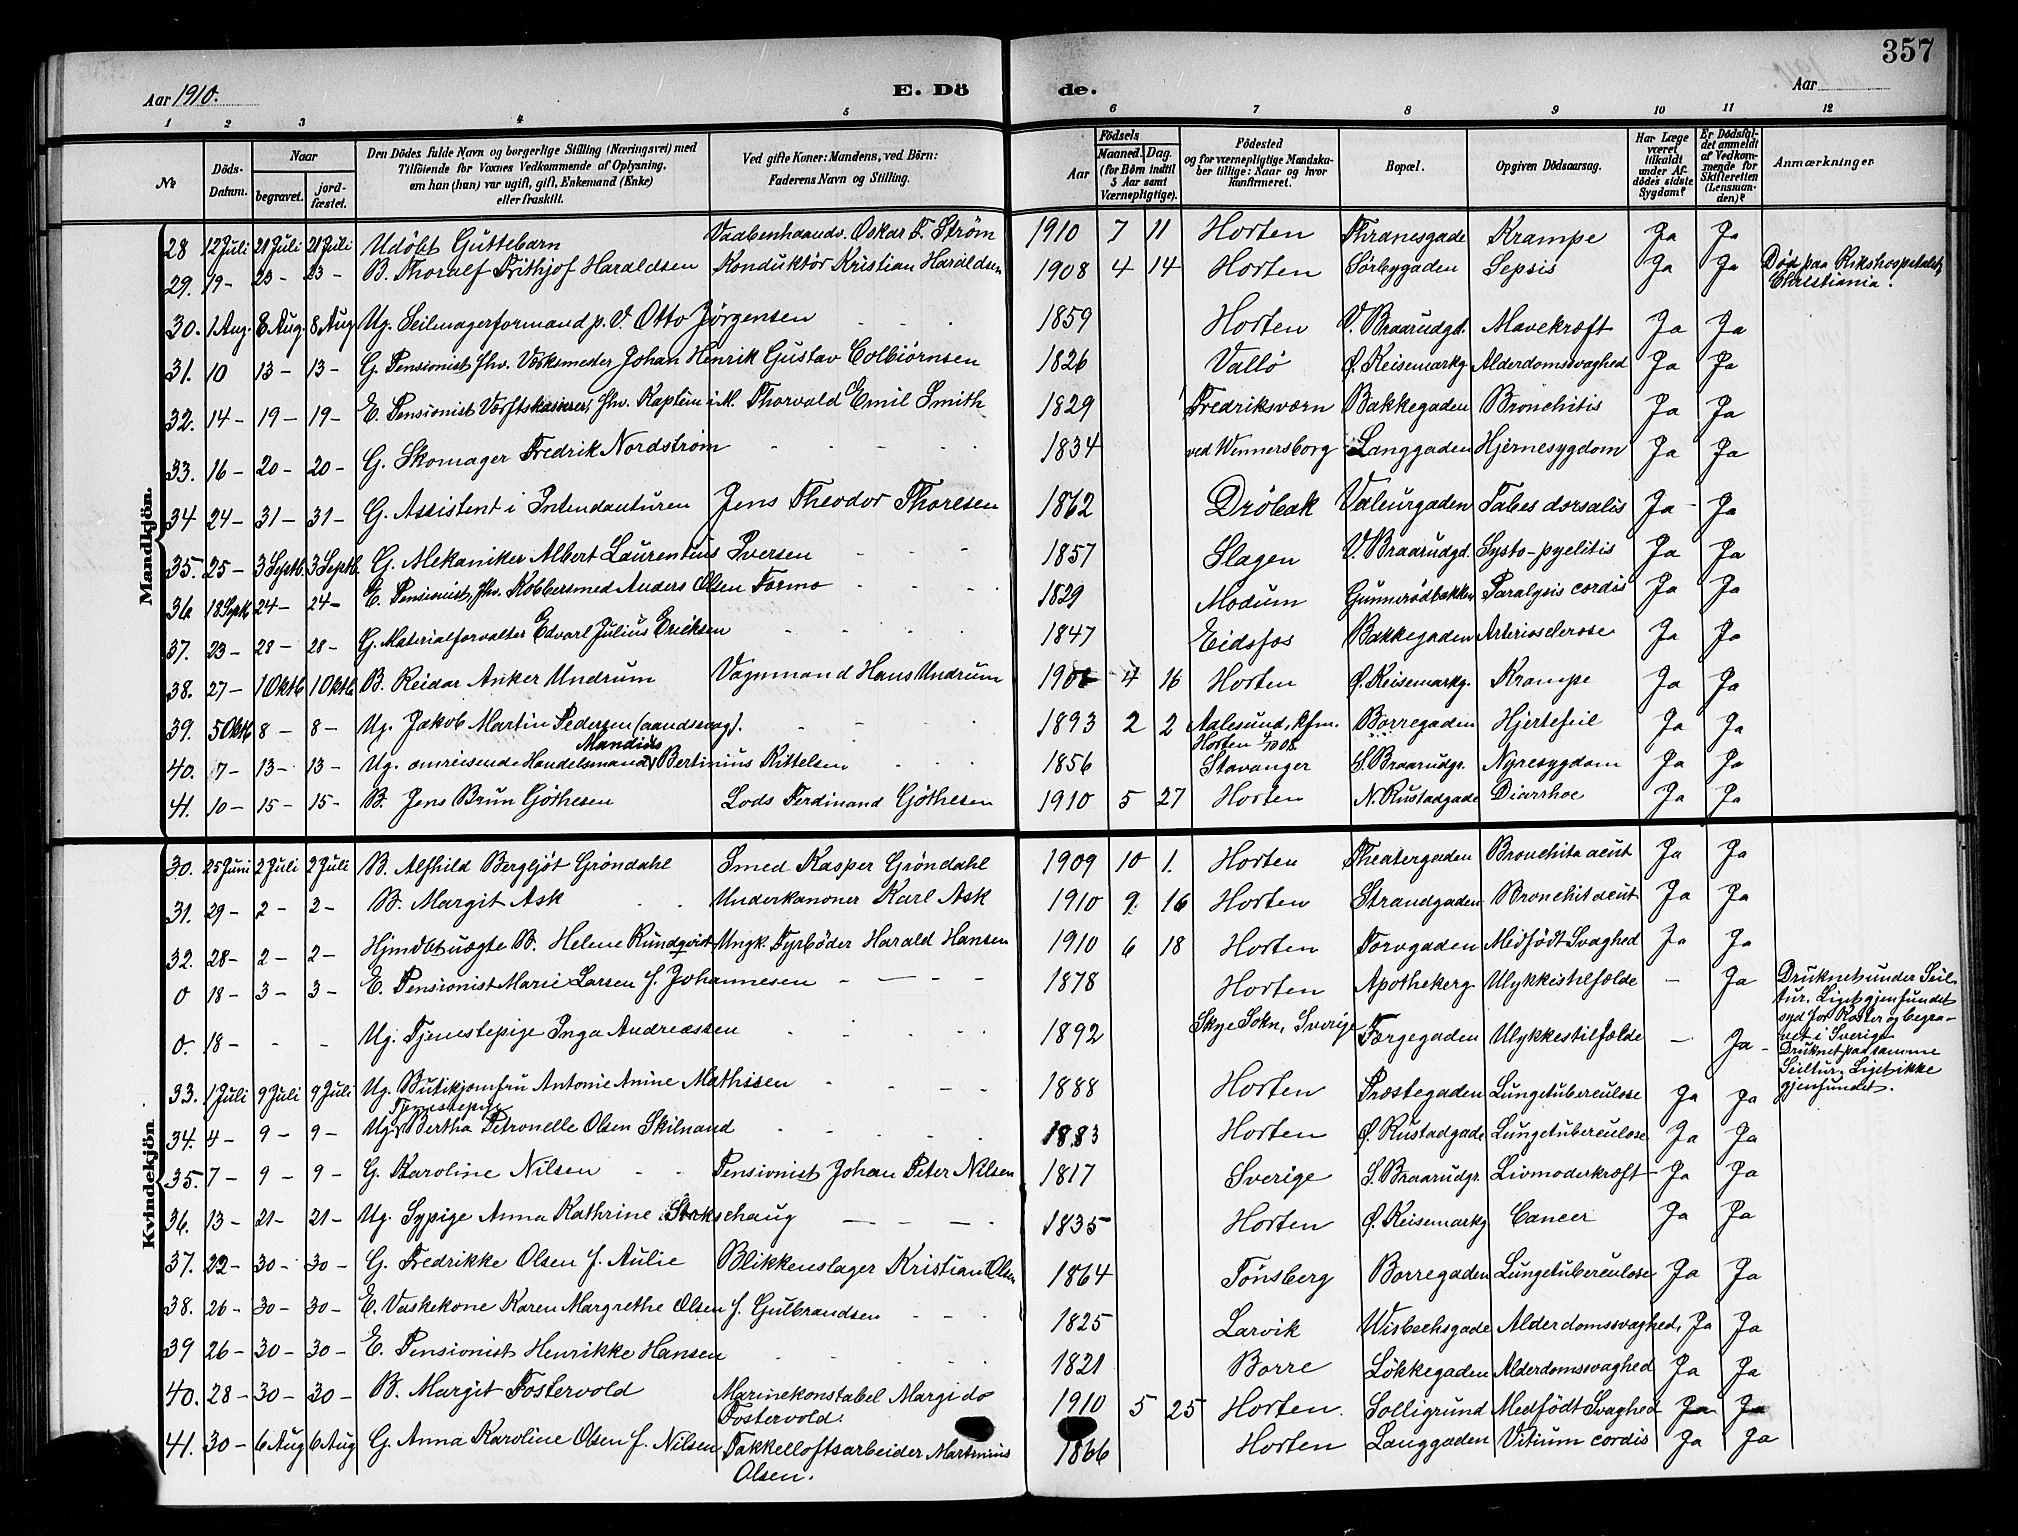 357
Aar 1910. E. Dö de. Aar
1 2 3 4 5 6 7 8 9 10 11 12
№ Döds-Datum. Naar begravet. jord-fæstet. Den Dödes fulde Navn og borgerlige Stilling (Næringsvei) med Tilföiende for Voxnes Vedkommende af Oplysning, om han (hun) var ugift, gift, Enkemand (Enke) eller fraskilt. Ved gifte Koner: Mandens, ved Börn: Faderens Navn og Stilling. Födsels Aar Maaned. Dag. (for Börn indtil 5 Aar samt Værnepligtige). Födested og for værnepligtige Mandska-ber tillige: Naar og hvor konfirmeret. Bopæl. Opgiven Dödsaarsag. Har Læge været tilkaldt under Af-dödes sidste Sygdom? Er Dödsfal-det anmeldt af Vedkom-mende for Skifteretten (Lensman-den)? Anmærkninger
Mandkjön.
28 12 Juli 21 Juli 21 Juli Udöbt Guttebarn Vaabenhaandv. Oskar F. Ström 1910 7 11 Horten Thranesgade Krampe Ja Ja
29. 19 - 23 - 23 - B. Thoralf Frithjof Haraldsen Konduktör Kristian Haraldsen 1908 4 14 Horten Sörbygaden Sepsis Ja Ja Död paa Rikshospitalet, Christiania.
30. 1 Aug. 8 Aug. 8 Aug Ug. Seilmagerformand p. V. Otto Jörgensen 1859 Horten V. Braarudgd. Mavekræft Ja Ja
31. 10 13 - 13 - G. Pensionist fhv. Værksmester Johan Henrik Gustav Colbiörnsen 1826 Vallö Ø. Keisemarkg Alderdomssvaghed Ja Ja
32. 14 - 19 - 19 - E. Pensionist Værftskasserer, fhv. Kaptein i M. Thorvald Emil Smith 1829 Fredriksværn Bakkegaden Bronchitis Ja Ja
33. 16 - 20 - 20 - G. Skomager Fredrik Nordström 1834 ved Wennersborg Langgaden Hjernesygdom Ja Ja
34 24 - 31 - 31 - G. Assistent i Intendanturen Jens Theodor Thoresen 1862 Dröbak Valeurgaden Tabes dorsalis Ja - Ja
35. 25 - 3 Septb. 3 Septb. G. Mekaniker Albert Laurentius Iversen 1857 Slagen V. Braarudgd. Systo-pyelitis Ja Ja
36 18 Septb 24 - 24 - E. Pensionist, fhv. Kobbersmed Anders Olsen Formo 1829 Modum Gunnerödbakken Paralysis cordis Ja Ja
37. 23 - 28 - 28 - G. Materialforvalter Edvart Julius Eriksen 1847 Eidsfos Bakkegaden Arteriosclerose Ja Ja
38. 27 - 1 Oktb 1 Oktb B. Reidar Anker Undrum Vognmand Hans Undrum 4 16 Horten Ø. Keisemarkg. Krampe Ja Ja
39. 5 Oktb 8 - 8 - Ug. Jakob Martin Pedersen (aandssvag). 1893 2 2 Aalesund, kfm. Horten 4/10 08. Borregaden Hjertefeil Ja Ja
40. 7 - 13 - 13 - Ug. omreisende Handelsmand Mandius Bertinius Kittelsen 1856 Stavanger S. Braarudgr. Nyresygdom Ja Ja
41. 10 - 15 - 15 - B. Jens Brun Göthesen Lods Ferdinand Göthesen 1910 5 27 Horten N. Rustadgade Diarrhoe Ja Ja
Kvindekjön.
30. 25 Juni 2 Juli 2 Juli B. Alfhild Bergljöt Gröndahl Smed Kasper Gröndahl 1909 10 1. Horten Theatergaden Bronchita acut Ja Ja
31. 29 - 2 - 2 - B. Margit Ask Underkanoner Karl Ask 1910 9. 16 Horten Strandgaden Bronchit acut Ja Ja
32. 28 - 2 - 2 - Hjmdbt uægte B. Helene Rundqvist Ungk. Fyrböder Harald Hansen 1910 6 18 Horten Torvgaden Medfödt Svaghed Ja Ja
0 18 - 3 - 3 - E. Pensionist Marie Larsen f. Johannesen 1878 Horten Apothekerg Ulykkestilfælde - Ja Druknet under Seil-tur. Liget gjenfundet syd for Koster og begra-vet i Sverige
0. 18 - - - Ug. Tjenestepige Inga Andreassen 1892 Skye Sokn, Sverige Færgegaden Ulykkestilfælde - Ja - Druknet paa samme Seiltur. Liget ikke gjenfundet.
33. 1 Juli 9 Juli 9 Juli Ug. Butikjomfru Antonie Anine Mathisen 1888 Horten Prostegaden Lungetuberculose Ja Ja
34. 4 - 9 - 9 - Ug. Tjenestepige Bertha Petronelle Olsen Skilnand 1883 Horten Ø. Rustadgade Lungetuberculose Ja Ja
35. 7 - 9 - 9 - G. Karoline Nilsen Pensionist Johan Peter Nilsen 1817 Sverige S. Braarudgr. Livmoderkræft Ja Ja
36. 13 - 21 - 21 - Ug. Sypige Anna Kathrine Storkschaug 1835 Horten Ø. Keisemarkg Cancer Ja Ja
37. 22 - 30 - 30 - G. Fredrikke Olsen f. Aulie Blikkenslager Kristian Olsen 1864 Tönsberg Borregaden Lungetuberculose Ja Ja
38. 26 - 30 - 30 - E. Vaskekone Karen Margrethe Olsen f. Gulbrandsen 1825 Larvik Wisbechsgade Alderdomssvaghed, Ja Ja
39 26 - 30 - 30 - E. Pensionist Henrikke Hansen 1821 Borre Lökkegaden Alderdomssvaghed Ja Ja
40. 28 - 30 - 30 - B. Margit Fostervold Marinekonstabel Margido Fostervold. 1910 5 25 Horten. Solligrund Medfödt Svaghed Ja Ja
41. 30 - 6 Aug 6 Aug G. Anna Karoline Olsen f. Nilsen Takkelloftsarbeider Martinius Olsen. 1866 Horten Langgaden Vitium cordis Ja Ja